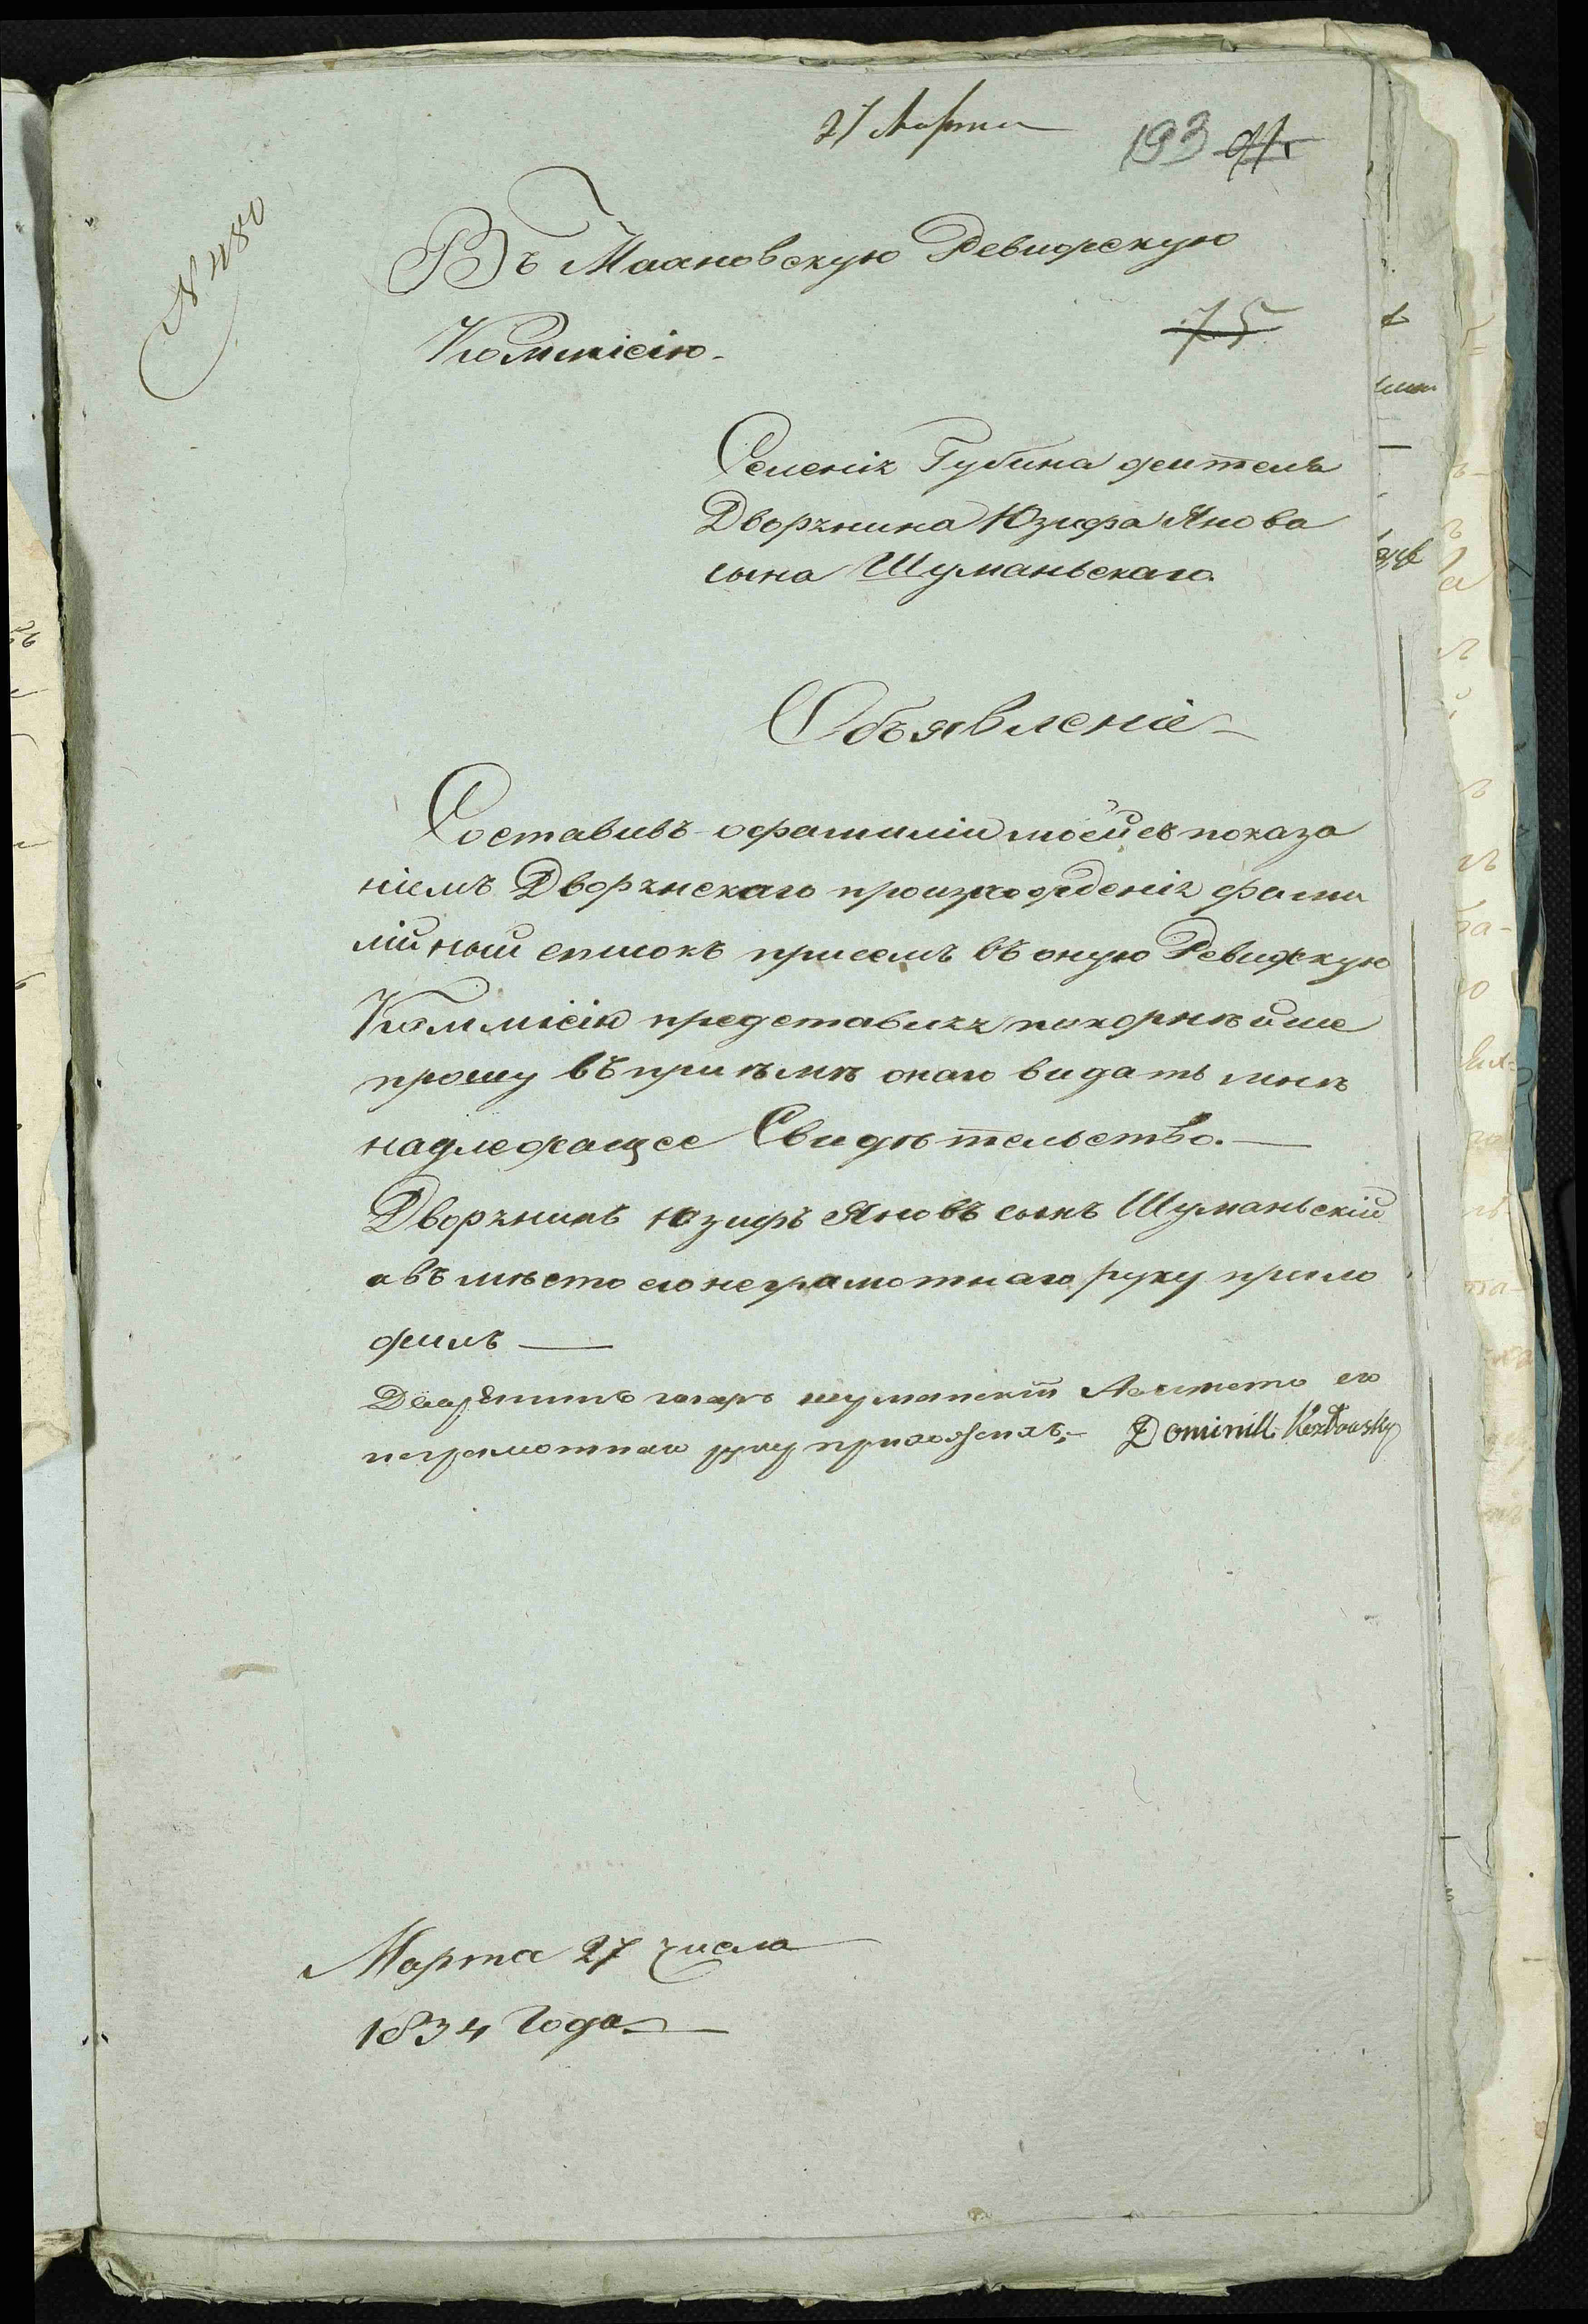 27 Марта
193
№ 480
Въ Махновскую Ревизскую
75
Коммисію.
Селенія Губина жителя
Дворянина Юзифа Янова
сына Шуманьскаго.
Объявленіе
Составивъ о фамиліи моей съ показа
ніемъ Дворянскаго произхожденія фами
лійный списокъ присемъ въ оную Ревизскую
Коммисію представляя покорнѣйше
прошу въ пріѣмѣ онаго видать мнѣ
надлежащее Свидѣтельство.
Дворянинъ Юзифъ Яновъ сынъ Шуманьскій
а въ мѣсто его неграмотнаго руку прило
жилъ
Дворенинъ шуманскій его
неграмотнаго руку приложилъ;- Dominik
Марта 27 числа
1834 Года